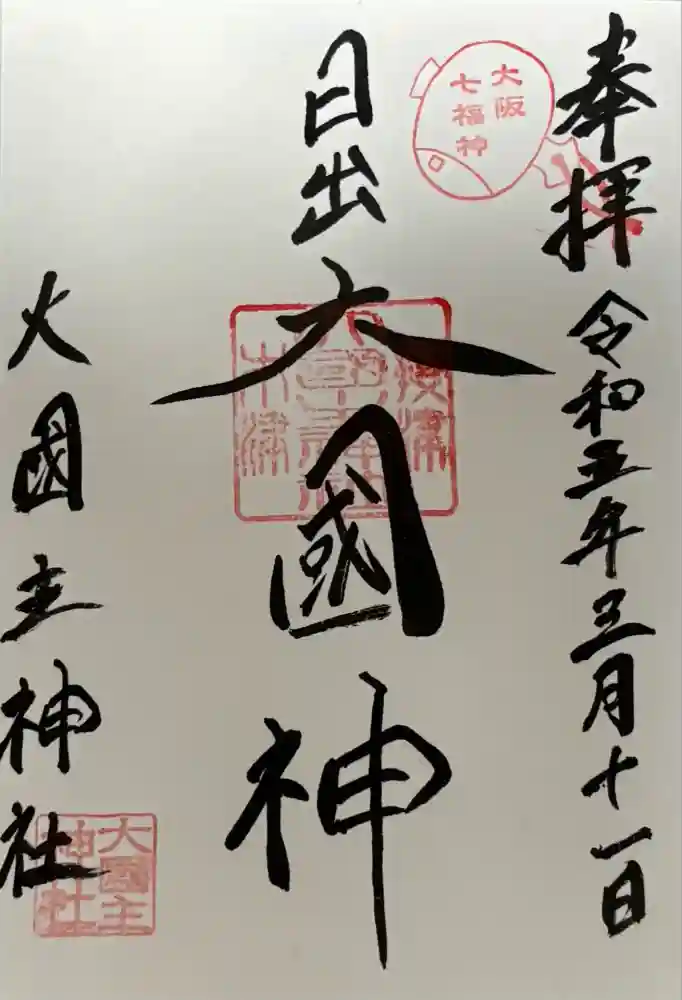 奉拝
令和五年三月十一日
大阪
七福神
日出大國神
大國主神社
大國主
神社